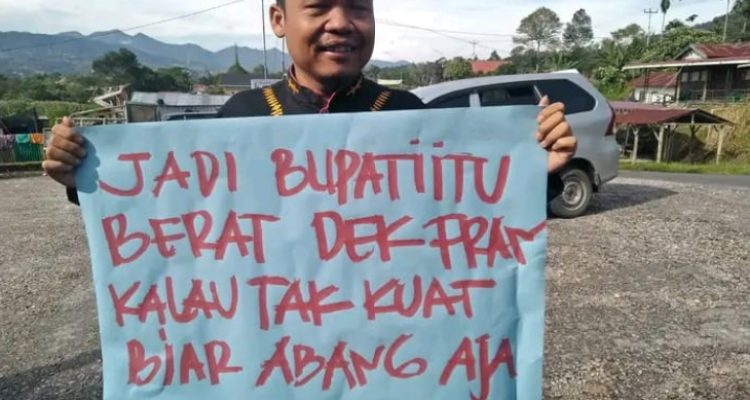 JADI BUPATI ITU
BERAT DEK PRAM
KALAU TAK KUAT
BIAR ABANG AJA